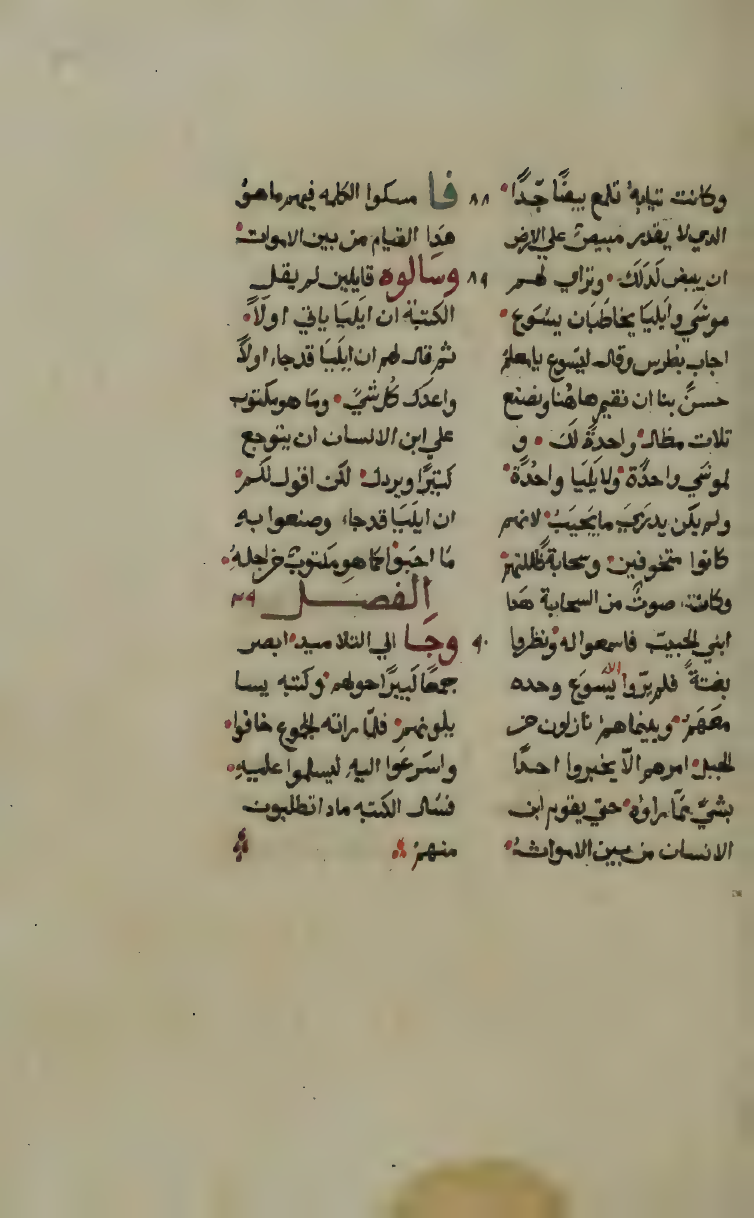 وكانت تيابه تلمع بيضًا جدًا
الدي لا يقدر مبيض علي الارض
ان يبيض كدلك وتراي لهم
موسي وايليا يخاطبان يسوع
اجاب بطرس وقال ليسوع يا معلم
حسنٌ بنا ان نقيم هاهنا ونصنع
تلات مظال واحدة لك و
لموسي واحدة ولايليا واحدة
ولم يكن يدري ما يجيب لانهم
كانوا متخوفين وسحابة ظللتهم
وكان صوت من السحابة هدا
ابني الحبيب فاسمعوا له ونظروا
بغتةً فلم يروا الا يسوع وحده
معهم وبينما هم نازلون من
الجبل امرهم الّا يخبروا احدًا
بشيٍ مما راوه حتي يقوم ابن
الانسان من بين الاموات
٨٨ فا مسكوا الكلمه فيهم ما هو
هدا القيام من بين الاموات
٨٩ وسالوه قايلين لم يقل
الكتبة ان ايليا ياتي اولًا
ثم قال لهم ان ايليا قد جاء اولًا
واعدك كل شيٍ وما هو مكتوب
علي ابن الانسان ان يتوجع
كتيرًا ويردل لكن اقول لكم
ان ايليا قد جاء وصنعوا به
ما احبوا كما هو مكتوب من اجله
الفصل ٢٩
٩٠ وجا الي التلاميد ابصر
جمعًا كبيرًا حولهم وكتبه يسا
يلونهم فلمّا راته الجموع خافوا
واسرعوا اليه ليسلموا عليه
فسال الكتبه مادا تطلبون
منهم